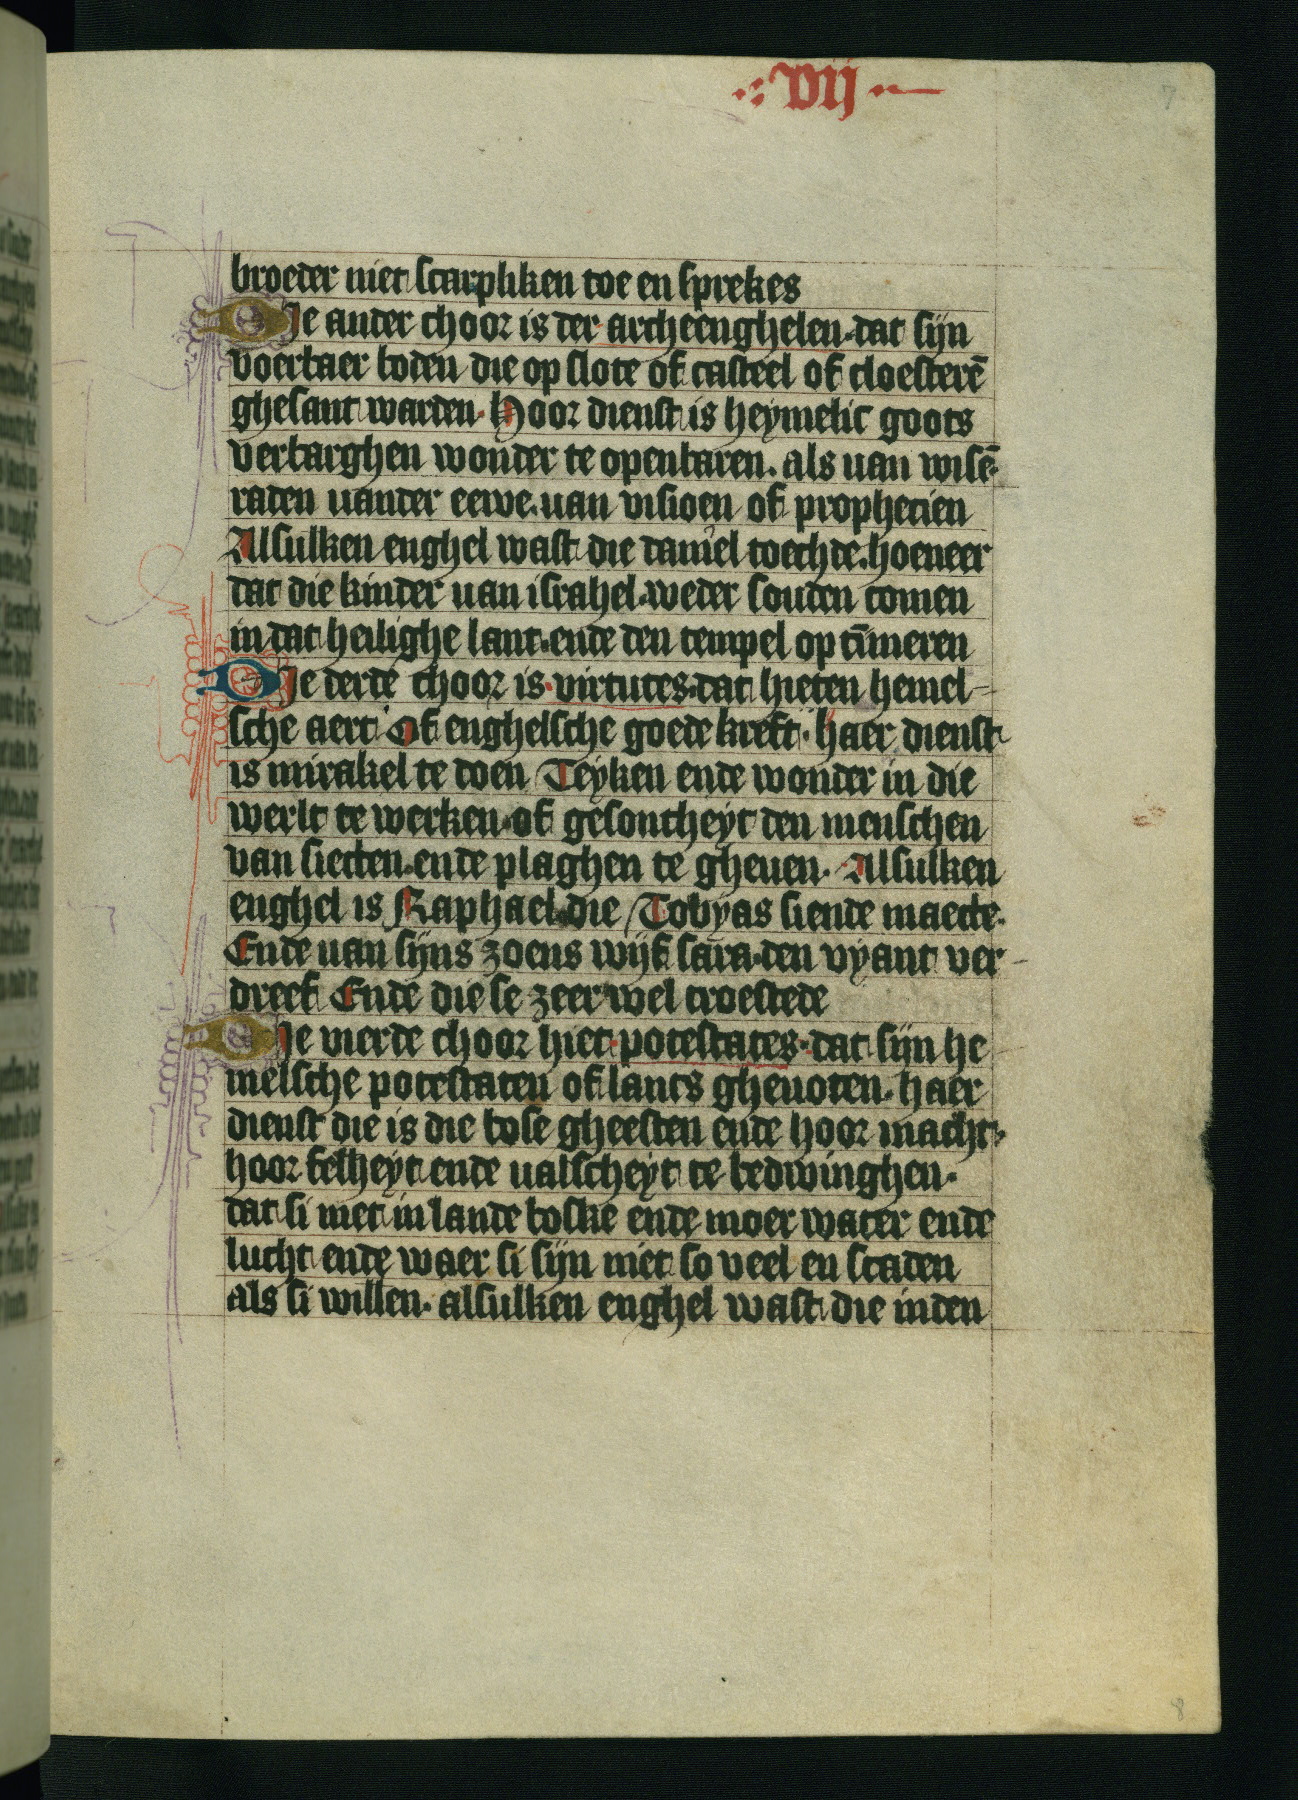 ·: vij ··
7
broeder niet scarpliken toe en sprekes
Die ander choor is der archeenghelen· dat sijn
voerbaer boden die op slote of casteel of cloesterē
ghesant warden· Hoor dienst is heymelic goots
verbarghen wonder te openbaren· als van wisē
raden vander eewe· van visioen of prophecien
Alsulken enghel wast die daniel toechde· hoeneer
dat die kinder van israhel· weder souden comen
in dat heilighe lant· ende den tempel op tīmeren
Die derde choor is· virtutes· dat hieten hemel-
sche aert Of enghelsche goede kreft· haer dienst
is mirakel te doen Teyken ende wonder in die
werlt te werken· of gesontheyt den menschen
van siecten· ende plaghen te gheuen· Alsulken
enghel is Raphael die Tobyas siende maecte·
Ende van sijns zoens wijf sara· den vyant ver-
dreef Ende die se zeer wel troestede
Die vierde choor hiet· potestates· dat sijn he-
melsche potestaten of lants ghenoten· haer
dienst die is die bose gheesten ende hoor macht·
hoor felheyt ende valscheyt te bedwinghen·
dat si niet in lande boske ende moer water ende
lucht ende waer si sijn niet so veel en scaden
als si willen· alsulken enghel wast die inden
8